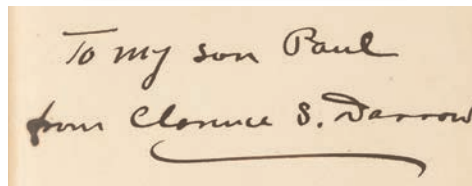 To my son Paul
from Clarence S. Darrow